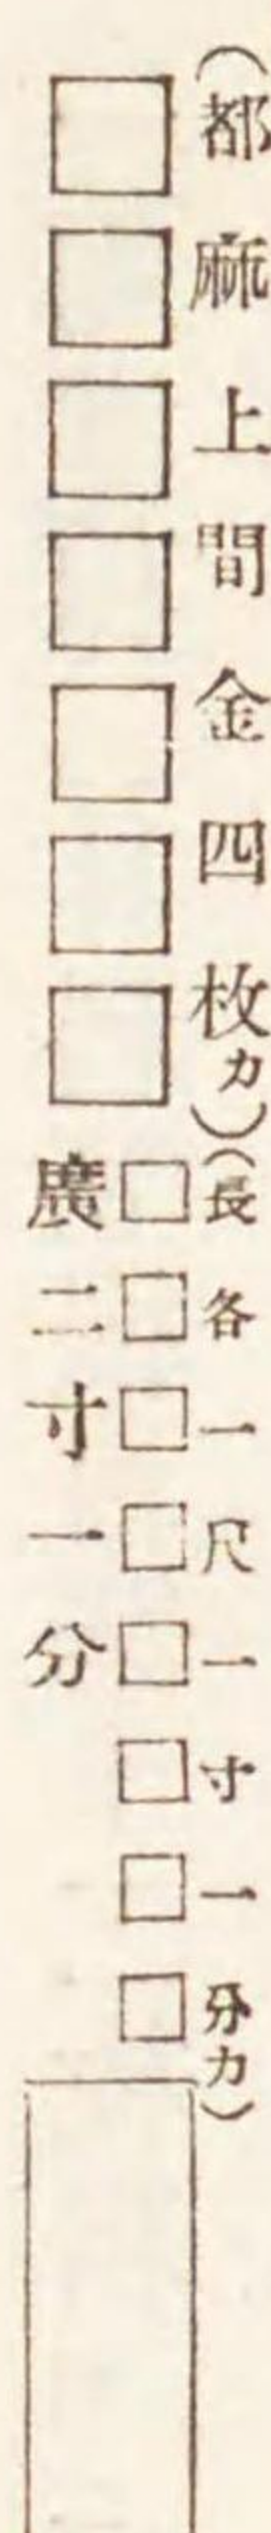 （都麻上間金四枚カ）
□□□□□□□
（長各一尺一寸一分カ）
□□□□□□□□
廣二寸一分